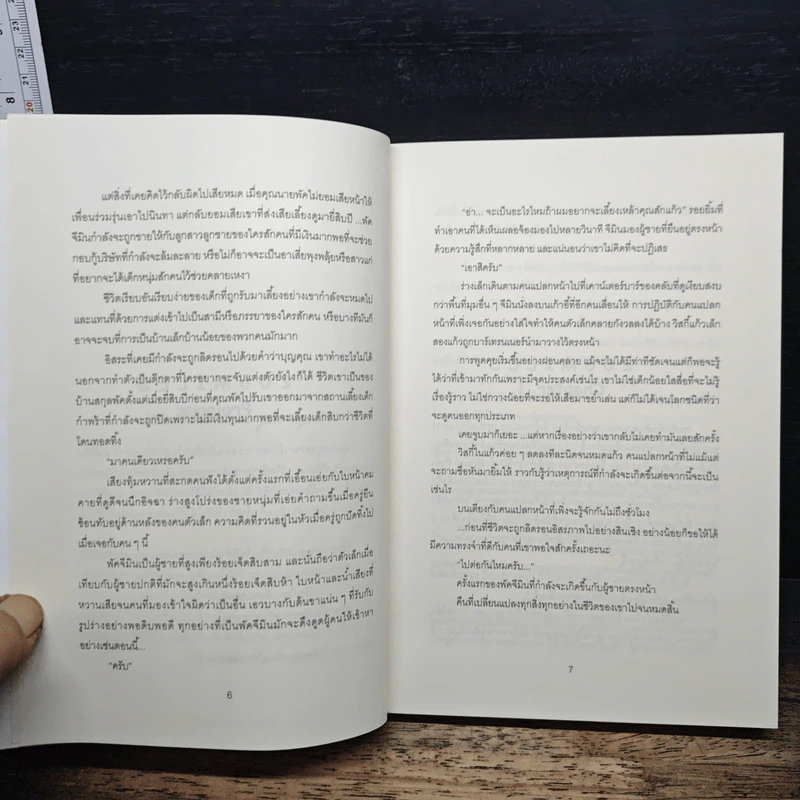 8
20
21
22
23
แต่สิ่งที่เคยคิดไว้กลับผิดไปเสียหมด เมื่อคุณนายพัคไม่ยอมเสียหน้าให้
เพื่อนร่วมรุ่นเอาไปนินทา แต่กลับยอมเสียเขาที่ส่งเสียเลี้ยงดูมายี่สิบปี ...พัค
จีมินกำลังจะถูกขายให้กับลูกสาวลูกชายของใครสักคนที่มีเงินมากพอที่จะช่วย
กอบกู้บริษัทที่กำลังจะล้มละลาย หรือไม่ก็อาจจะเป็นอาเสี่ยพุงพลุ้ยหรือสาวแก่
ที่อยากจะได้เด็กหนุ่มสักคนไว้ช่วยคลายเหงา
ชีวิตเรียบอันเรียบง่ายของเด็กที่ถูกรับมาเลี้ยงอย่างเขากำลังจะหมดไป
และแทนที่ด้วยการแต่งเข้าไปเป็นสามีหรือภรรยาของใครสักคน หรือบางทีมันก็
อาจจะจบที่การเป็นบ้านเล็กบ้านน้อยของพวกคนมักมาก
อิสระที่เคยมีกำลังจะถูกลิดรอนไปด้วยคำว่าบุญคุณ เขาทำอะไรไม่ได้
นอกจากทำตัวเป็นตุ๊กตาที่ใครอยากจะจับแต่งตัวยังไงก็ได้ ชีวิตเขาเป็นของ
บ้านสกุลพัคตั้งแต่เมื่อยี่สิบปีก่อนที่คุณพัคไปรับเขาออกมาจากสถานเลี้ยงเด็ก
กำพร้าที่กำลังจะถูกปิดเพราะไม่มีเงินทุนมากพอที่จะเลี้ยงเด็กสิบกว่าชีวิตที่
โดนทอดทิ้ง
“มาคนเดียวเหรอครับ”
เสียงทุ้มหวานที่สะกดคนฟังได้ตั้งแต่ครั้งแรกที่เอื้อนเอ่ยกับใบหน้าคม
คายที่ดูดีจนนึกอิจฉา ร่างสูงโปร่งของชายหนุ่มที่เอ่ยคำถามขึ้นเมื่อครู่ยืน
ซ้อนทับอยู่ด้านหลังของคนตัวเล็ก ความคิดที่รวนอยู่ในหัวเมื่อครู่ถูกปัดทิ้งไป
เมื่อเจอกับคน ๆ นี้
พัคจีมินเป็นผู้ชายที่สูงเพียงร้อยเจ็ดสิบสาม และนั่นถือว่าตัวเล็กเมื่อ
เทียบกับผู้ชายปกติที่มักจะสูงเกินหนึ่งร้อยเจ็ดสิบห้า ใบหน้าและน้ำเสียงที่
หวานเสียจนคนที่มองเข้าใจผิดว่าเป็นอื่น เอวบางกับต้นขาแน่น ๆ ที่รับกับ
รูปร่างอย่างพอดิบพอดี ทุกอย่างที่เป็นพัคจีมินมักจะดึงดูดผู้คนให้เข้าหา
อย่างเช่นตอนนี้...
“ครับ”
6
“อ่า... จะเป็นอะไรไหมถ้าผมอยากจะเลี้ยงเหล้าคุณสักแก้ว” รอยยิ้มที่
ทำเอาคนที่ได้เห็นเผลอจ้องมองไปหลายวินาที จีมินมองผู้ชายที่ยืนอยู่ตรงหน้า
ด้วยความรู้สึกที่หลากหลาย และแน่นอนว่าเขาไม่คิดที่จะปฏิเสธ
“เอาสิครับ”
ร่างเล็กเดินตามคนแปลกหน้าไปที่เคาน์เตอร์บาร์ของคลับที่ดูเงียบสงบ
กว่าพื้นที่มุมอื่น ๆ จีมินนั่งลงบนเก้าอี้ที่อีกคนเลื่อนให้ การปฏิบัติกับคนแปลก
หน้าที่เพิ่งเจอกันอย่างใส่ใจทำให้คนตัวเล็กคลายกังวลลงได้บ้าง วิสกี้แก้วเล็ก
สองแก้วถูกบาร์เทรนเนอร์นำมาวางไว้ตรงหน้า
การพูดคุยเริ่มขึ้นอย่างผ่อนคลาย แม้จะไม่ได้มีท่าทีชัดเจนแต่ก็พอจะรู้
ได้ว่าที่เข้ามาทักกันเพราะมีจุดประสงค์เช่นไร เขาไม่ใช่เด็กน้อยใสซื่อที่จะไม่รู้
เรื่องรู้ราว ไม่ใช่กวางน้อยที่จะรอให้เสือมาขย้ำเล่น แต่ก็ไม่ได้เจนโลกชนิดที่ว่า
จะดูคนออกทุกประเภท
เคยจูบมาก็เยอะ ...แต่หากเรื่องอย่างว่าเขากลับไม่เคยทำมันเลยสักครั้ง
วิสกี้ในแก้วค่อย ๆ ลดลงทีละนิดจนหมดแก้ว คนแปลกหน้าที่ไม่แม้แต่
จะถามชื่อหันมายิ้มให้ ราวกับรู้ว่าเหตุการณ์ที่กำลังจะเกิดขึ้นต่อจากนี้จะเป็น
เช่นไร
บนเตียงกับคนแปลกหน้าที่เพิ่งจะรู้จักกันไม่ถึงชั่วโมง
...ก่อนที่ชีวิตจะถูกลิดรอนอิสรภาพไปอย่างสิ้นเชิง อย่างน้อยก็ขอให้ได้
มีความทรงจำที่ดีกับคนที่เขาพอใจสักครั้งเถอะนะ
“ไปต่อกันไหมครับ...”
ครั้งแรกของพัคจีมินที่กำลังจะเกิดขึ้นกับผู้ชายตรงหน้า
คืนที่เปลี่ยนแปลงทุกสิ่งทุกอย่างในชีวิตของเขาไปจนหมดสิ้น
7